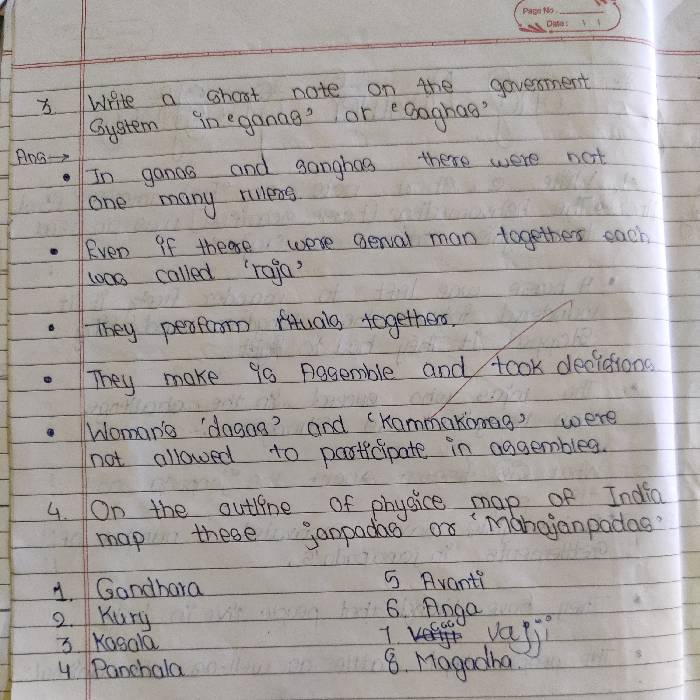 Page No.
Date:
3 Write a short note on the goverment
System in 'ganas' or 'Saghas'
Ans→
• In ganas and sanghas there were not
one many rulers
• Even if there were serval man together each
was called 'raja'
• They perform rituals together.
• They make is Assemble and took decidions
• Woman's 'dasas' and 'Kammakoras' were
not allowed to participate in assembles.
4. On the outline of physice map of India
map these janpadas or 'Mahajanpadas'
1. Gandhara
2. Kury
3 Kosala
4 Panchala
5 Avanti
6. Anga
7 Vajji
8. Magadha.